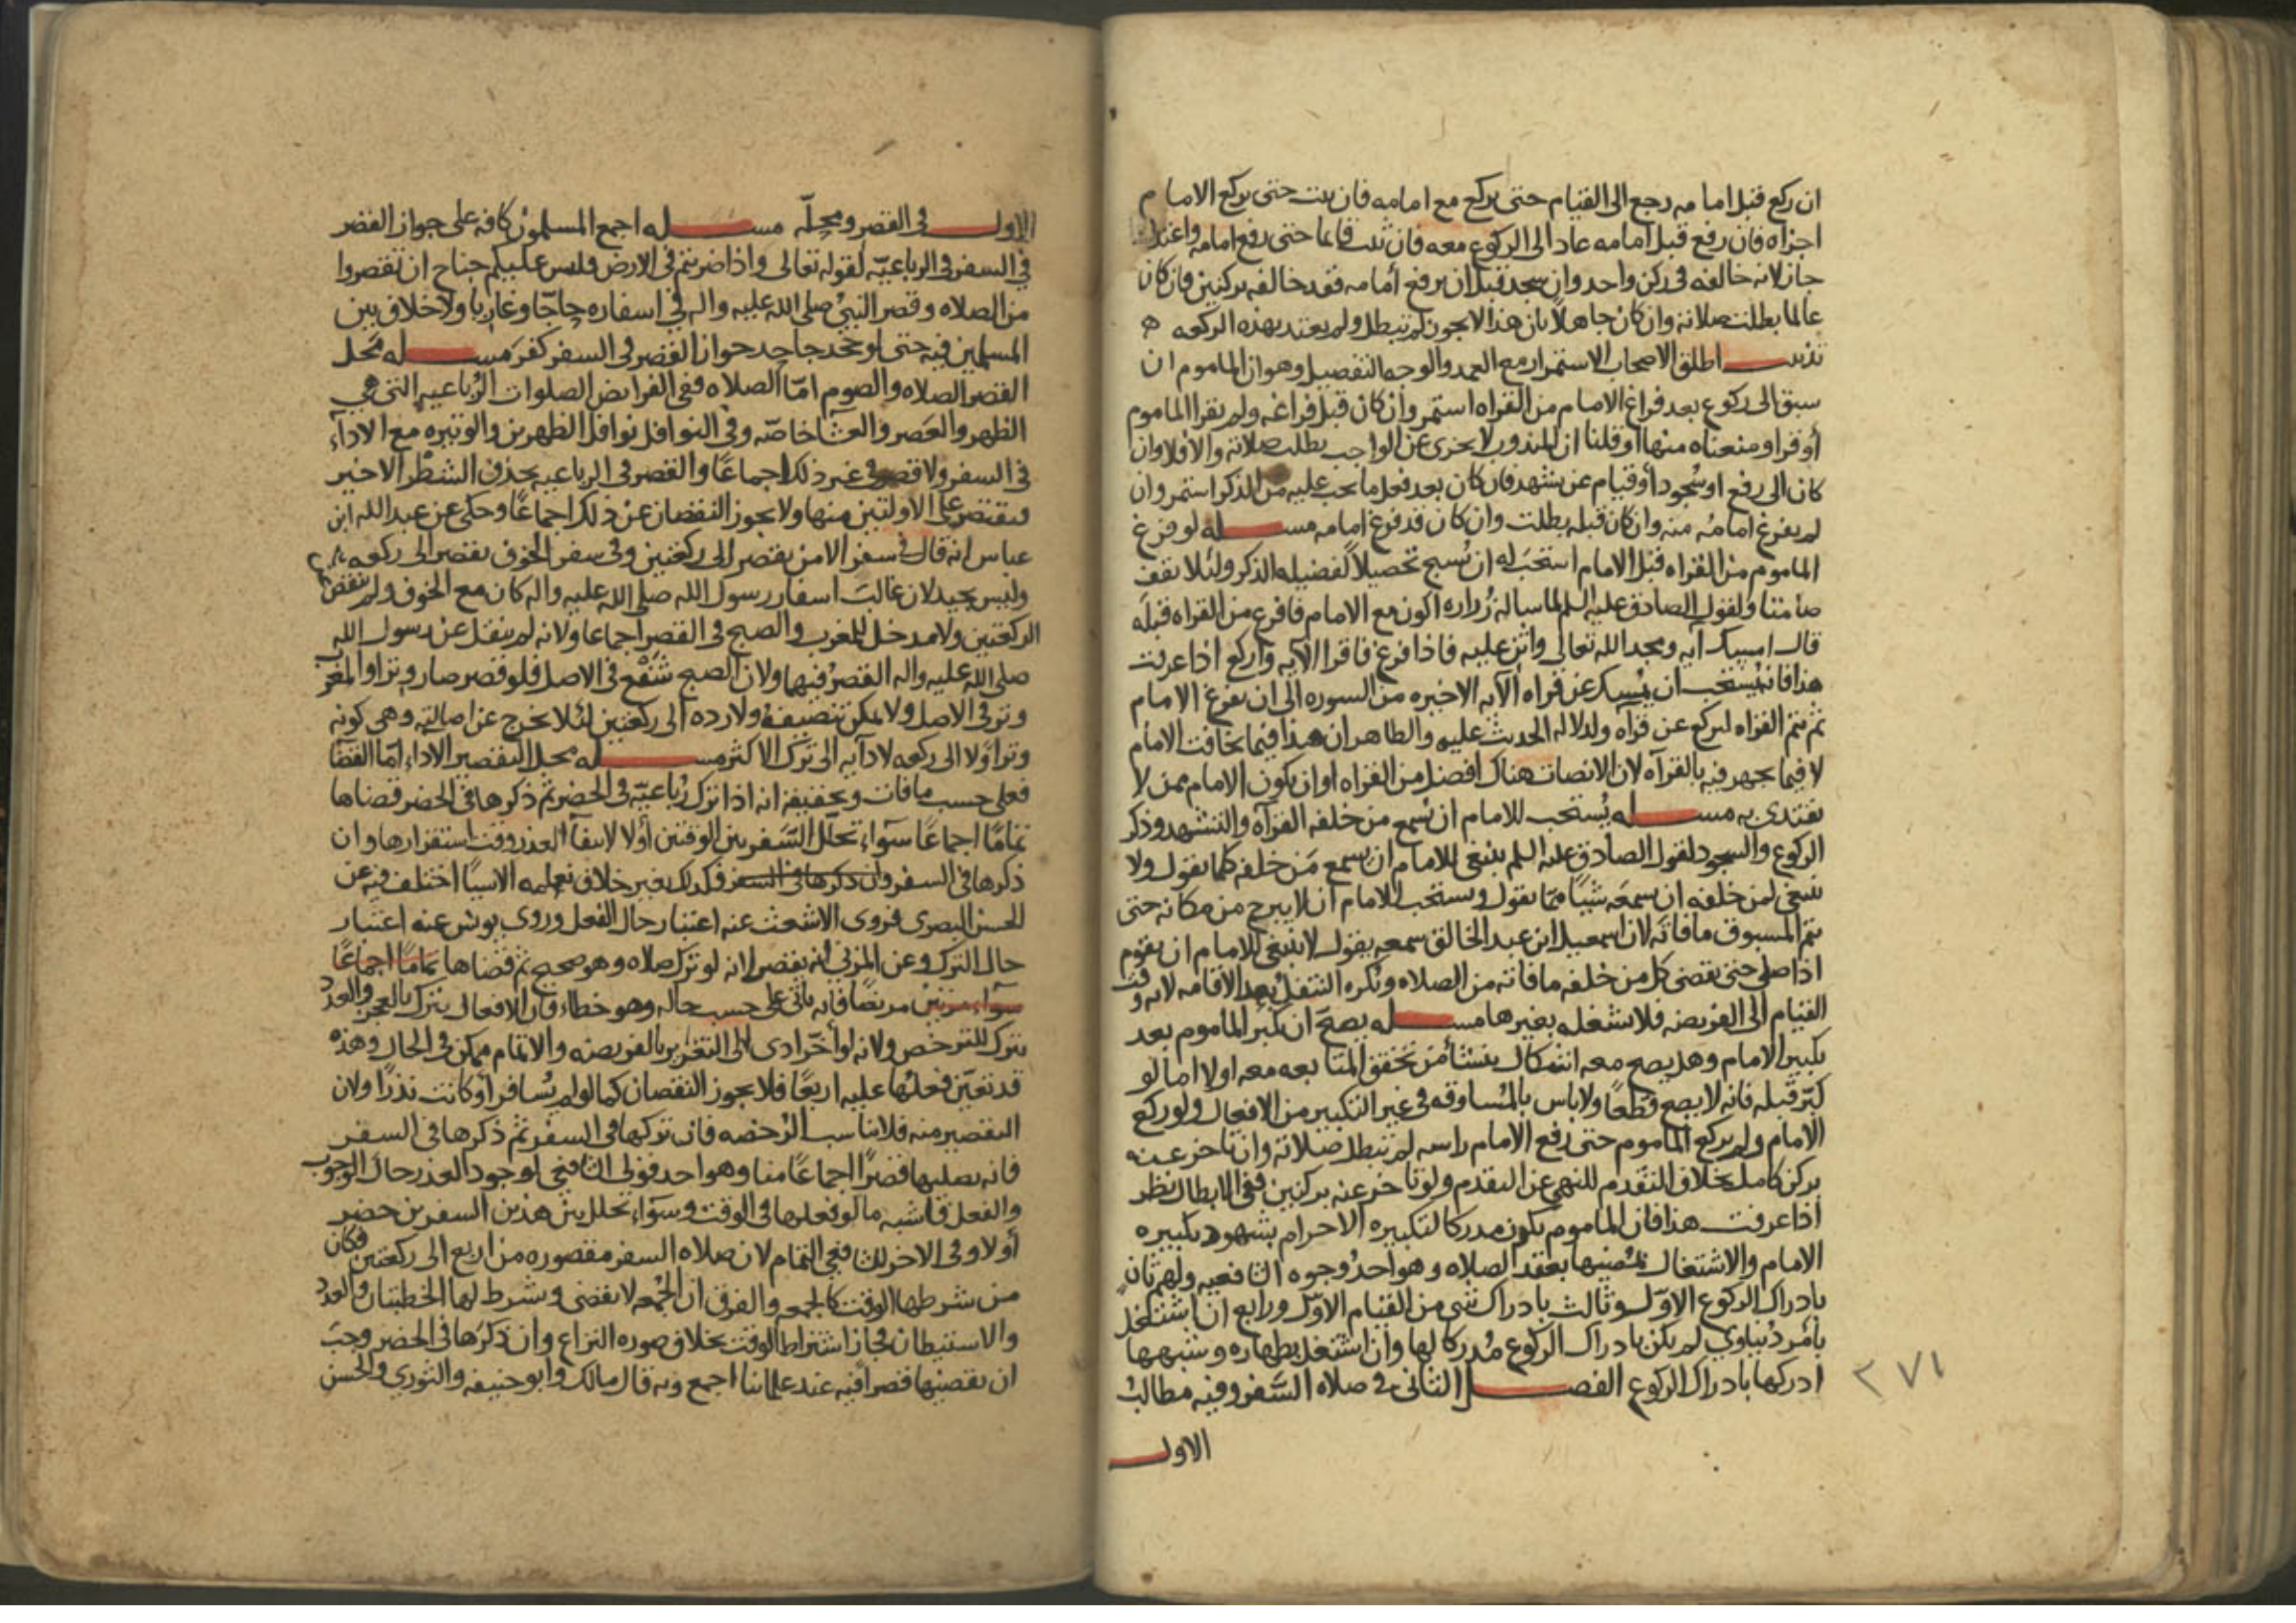 ان ركع قبل امامه رجع الى القيام حتى يركع مع امامه فان ثبت حتى يركع الامام
اجزاه فان رفع قبل امامه عاد الى الركوع معه فان ثبت قائما حتى رفع امامه واعتدل
جاز لانه خالفه فى ركن واحد وان سجد قبل ان يرفع امامه فقد خالفه بركنين فان كان
عالما بطلت صلاته وان كان جاهلا بان هذا لا يجوز لم تبطل ولم يعتد بهذه الركعه ه
تذنيب اطلق الاصحاب الاستمرار مع العمد والوجه التفصيل وهو ان الماموم ان
سبق الى ركوع بعد فراغ الامام من القراه استمر وان كان قبل فراغه ولم يقرا الماموم
أو قرا ومنعناه منها او قلنا ان المندوب لا يجزى عن الواجب بطلت صلاته والا فلا وان
كان الى رفع او سجود أو قيام عن تشهد فان كان بعد فعل ما يجب عليه من الذكر استمر وان
لم يفرغ امامه منه وان كان قبله بطلت وان كان قد فرغ امامه مسله لو فرغ
الماموم من القراه قبل الامام استحب له ان يسبح تحصيلا لفضيله الذكر ولئلا يقف
صامتا ولقول الصادق عليه السلم لما ساله زراره اكون مع الامام فافرغ من القراه قبله
قال امسك آيه ومجد الله تعالى واثن عليه فاذا فرغ فاقرا الآيه واركع اذا عرفت
هذا فانه يستحب ان يمسك عن قراه الآيه الاخيره من السوره الى ان يفرغ الامام
ثم يتم القراه ليركع عن قرآه ولدلاله الحديث عليه والظاهر ان هذا فيما يخافت الامام
لا فيما يجهر فيه بالقرآه لان الانصات هناك افضل من القراه او ان يكون الامام ممن لا
يقتدى به مسله يستحب للامام ان يسمع من خلفه القرآه والتشهد وذكر
الركوع والسجود لقول الصادق عليه السلم ينبغى للامام ان يسمع من خلفه كلما يقول ولا
ينبغى لمن خلفه ان يسمعه شيئا مما يقول ويستحب للامام ان لا يبرح من مكانه حتى
يتم المسبوق ما فاته لان اسمعيل ابن عبد الخالق سمعه يقول لا ينبغى للامام ان يقوم
اذا صلى حتى يقضى كل من خلفه ما فاته من الصلاه ويكره التنفل بعد الاقامه لانه وقت
القيام الى الفريضه فلا تشغله بغيرها مسله يصح ان يكبر الماموم بعد
تكبير الامام وهل يصح معه اشكال ينشأ من تحقق المتابعه معه اولا اما لو
كبر قبله فانه لا يصح قطعا ولا باس بالمساوقه فى غير التكبير من الافعال ولو ركع
الامام ولم يركع الماموم حتى رفع الامام راسه لم تبطل صلاته وان تاخر عنه
بركن كامل بخلاف التقدم للنهى عن التقدم ولو تاخر عنه بركنين ففى الابطال نظر
اذا عرفت هذا فان الماموم يكون مدركا لتكبيره الاحرام بشهود تكبيره
الامام والاشتغال بمثلها بعقد الصلاه وهو احد وجوه الشافعيه ولهم ثان
بادراك الركوع الاول وثالث بادراك شى من القيام الاول ورابع ان اشتغل
بأمر دنياوى لم يكن بادراك الركوع مدركا لها وان اشتغل بطهاره وشبهها
ادركها بادراك الركوع الفصل الثانى فى صلاه السفر وفيه مطالب
٢٧١
الاول
الاول فى القصر ومحله مسله اجمع المسلمون كافه على جواز القصر
فى السفر فى الرباعيه لقوله تعالى واذا ضربتم فى الارض فليس عليكم جناح ان تقصروا
من الصلاه وقصر النبى صلى الله عليه واله فى اسفاره حاجا وغازيا ولا خلاف بين
المسلمين فيه حتى لو جحد جاحد جواز القصر فى السفر كفر مسله محل
القصر الصلاه والصوم اما الصلاه ففى الفرايض الصلوات الرباعيه التى هى
الظهر والعصر والعشا خاصه وفى النوافل نوافل الظهرين والوتيره مع الادآء
فى السفر ولا قصر فى غير ذلك اجماعا والقصر فى الرباعيه بحذف الشطر الاخير
ويقتصر على الاولتين منها ولا يجوز النقصان عن ذلك اجماعا وحكى عن عبد الله ابن
عباس انه قال فى سفر الامن يقصر الى ركعتين وفى سفر الخوف يقصر الى ركعه
وليس بجيد لان غالب اسفار رسول الله صلى الله عليه واله كان مع الخوف ولم ينقص
الركعتين ولا مدخل للمغرب والصبح فى القصر اجماعا ولانه لم ينقل عن رسول الله
صلى الله عليه واله القصر فيها ولان الصبح شفع فى الاصل فلو قصر صار وترا والمغرب
وتر فى الاصل ولا يمكن تنصيفه ولا رده الى ركعتين لئلا يخرج عن اصالته وهى كونه
وترا ولا الى ركعه لادآيه الى ترك الاكثر مسله محل التقصير الاداء اما القضا
فعلى حسب ما فات وتحقيقه انه اذا ترك رباعيه فى الحضر ثم ذكرها فى الحضر قضاها
تماما اجماعا سوآء تخلل السفر بين الوقتين أولا لانتفآ العذر وقت استقرارها وان
ذكرها فى السفر وان ذكرها فى السفر فكذلك بغير خلاف نعلمه الا شيئا اختلف فيه عن
الحسن البصرى فروى الاشعث عنه اعتبار حال الفعل وروى يونس عنه اعتبار
حال الترك وعن المزنى انه يقصر لانه لو ترك صلاه وهو صحيح ثم قضاها تماما اجماعا
سوآء مرتين مريضا فانه ياتى على حسب حاله وهو خطاء فان الافعال يترك بالعجز والعدد
يترك للترخص ولانه لو أخر ادى الى التغرير بالفريضه والاتمام ممكن فى الحال وهذه
قد تعين فعلها عليه اربعا فلا يجوز النقصان كما لو لم يسافر أو كانت نذرا ولان
التقصير منه فلا يناسب الرخصه فان تركها فى السفر ثم ذكرها فى السفر
فانه يصليها قصرا اجماعا منا وهو احد قولى الشافعى لوجود العذر حال الوجوب
والفعل فاشبه ما لو فعلها فى الوقت وسوآء تخلل بين هذين السفرين حضر
أولا وفى الاخر للشافعى التمام لان صلاه السفر مقصوره من اربع الى ركعتين فكان
من شرطها الوقت كالجمعه والفرق ان الجمعه لا يقضى ويشترط لها الخطبتان والعدد
والاستيطان فجاز اشتراط الوقت بخلاف صوره النزاع وان ذكرها فى الحضر وجب
ان يقضيها قصرا فيه عند علمائنا اجمع وبه قال مالك وابو حنيفه والثورى والحسن